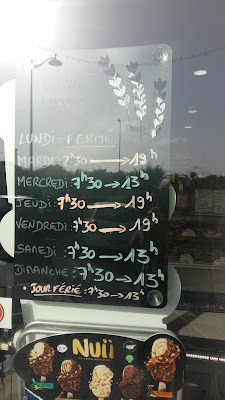 LUNDI : FERMÉ
MARDI : 7h30 → 19h
MERCREDI : 7h30 → 13h
JEUDI : 7h30 → 19h
VENDREDI : 7h30 → 19h
SAMEDI : 7h30 → 13h
DIMANCHE : 7h30 → 13h
• JOUR FÉRIÉ : 7h30 → 13h
Nuii